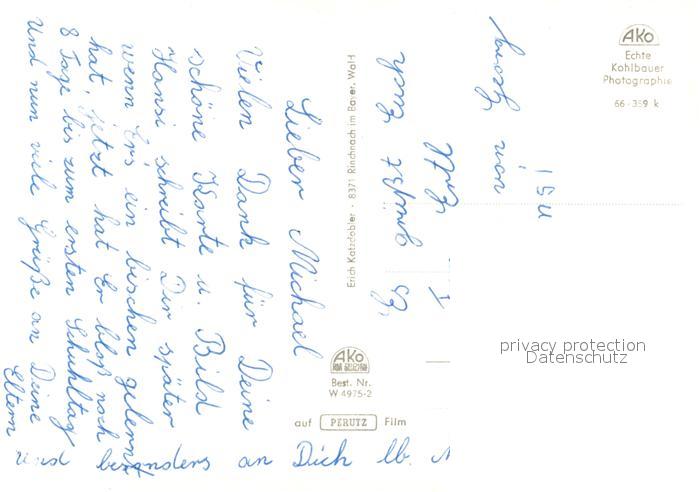 Lieber Michael
Vielen Dank für Deine
schöne Karte u. Bild
Hansi schreibt Dir später
wenn Er's ein bischen gelernt
hat, jetzt hat Er bloß noch
8 Tage bis zum ersten Schuhltag
Und nun viele Grüße an Deine
Eltern
und besonders an Dich lb. M
Es grüßt Euch
recht
herzlich von
Erich Katzdobler · 8371 Rinchnach im Bayer. Wald
AKO
Best. Nr.
W 4975-2
auf PERUTZ Film
AKO
Echte
Kohlbauer
Photographie
66-359 k
privacy protection
Datenschutz